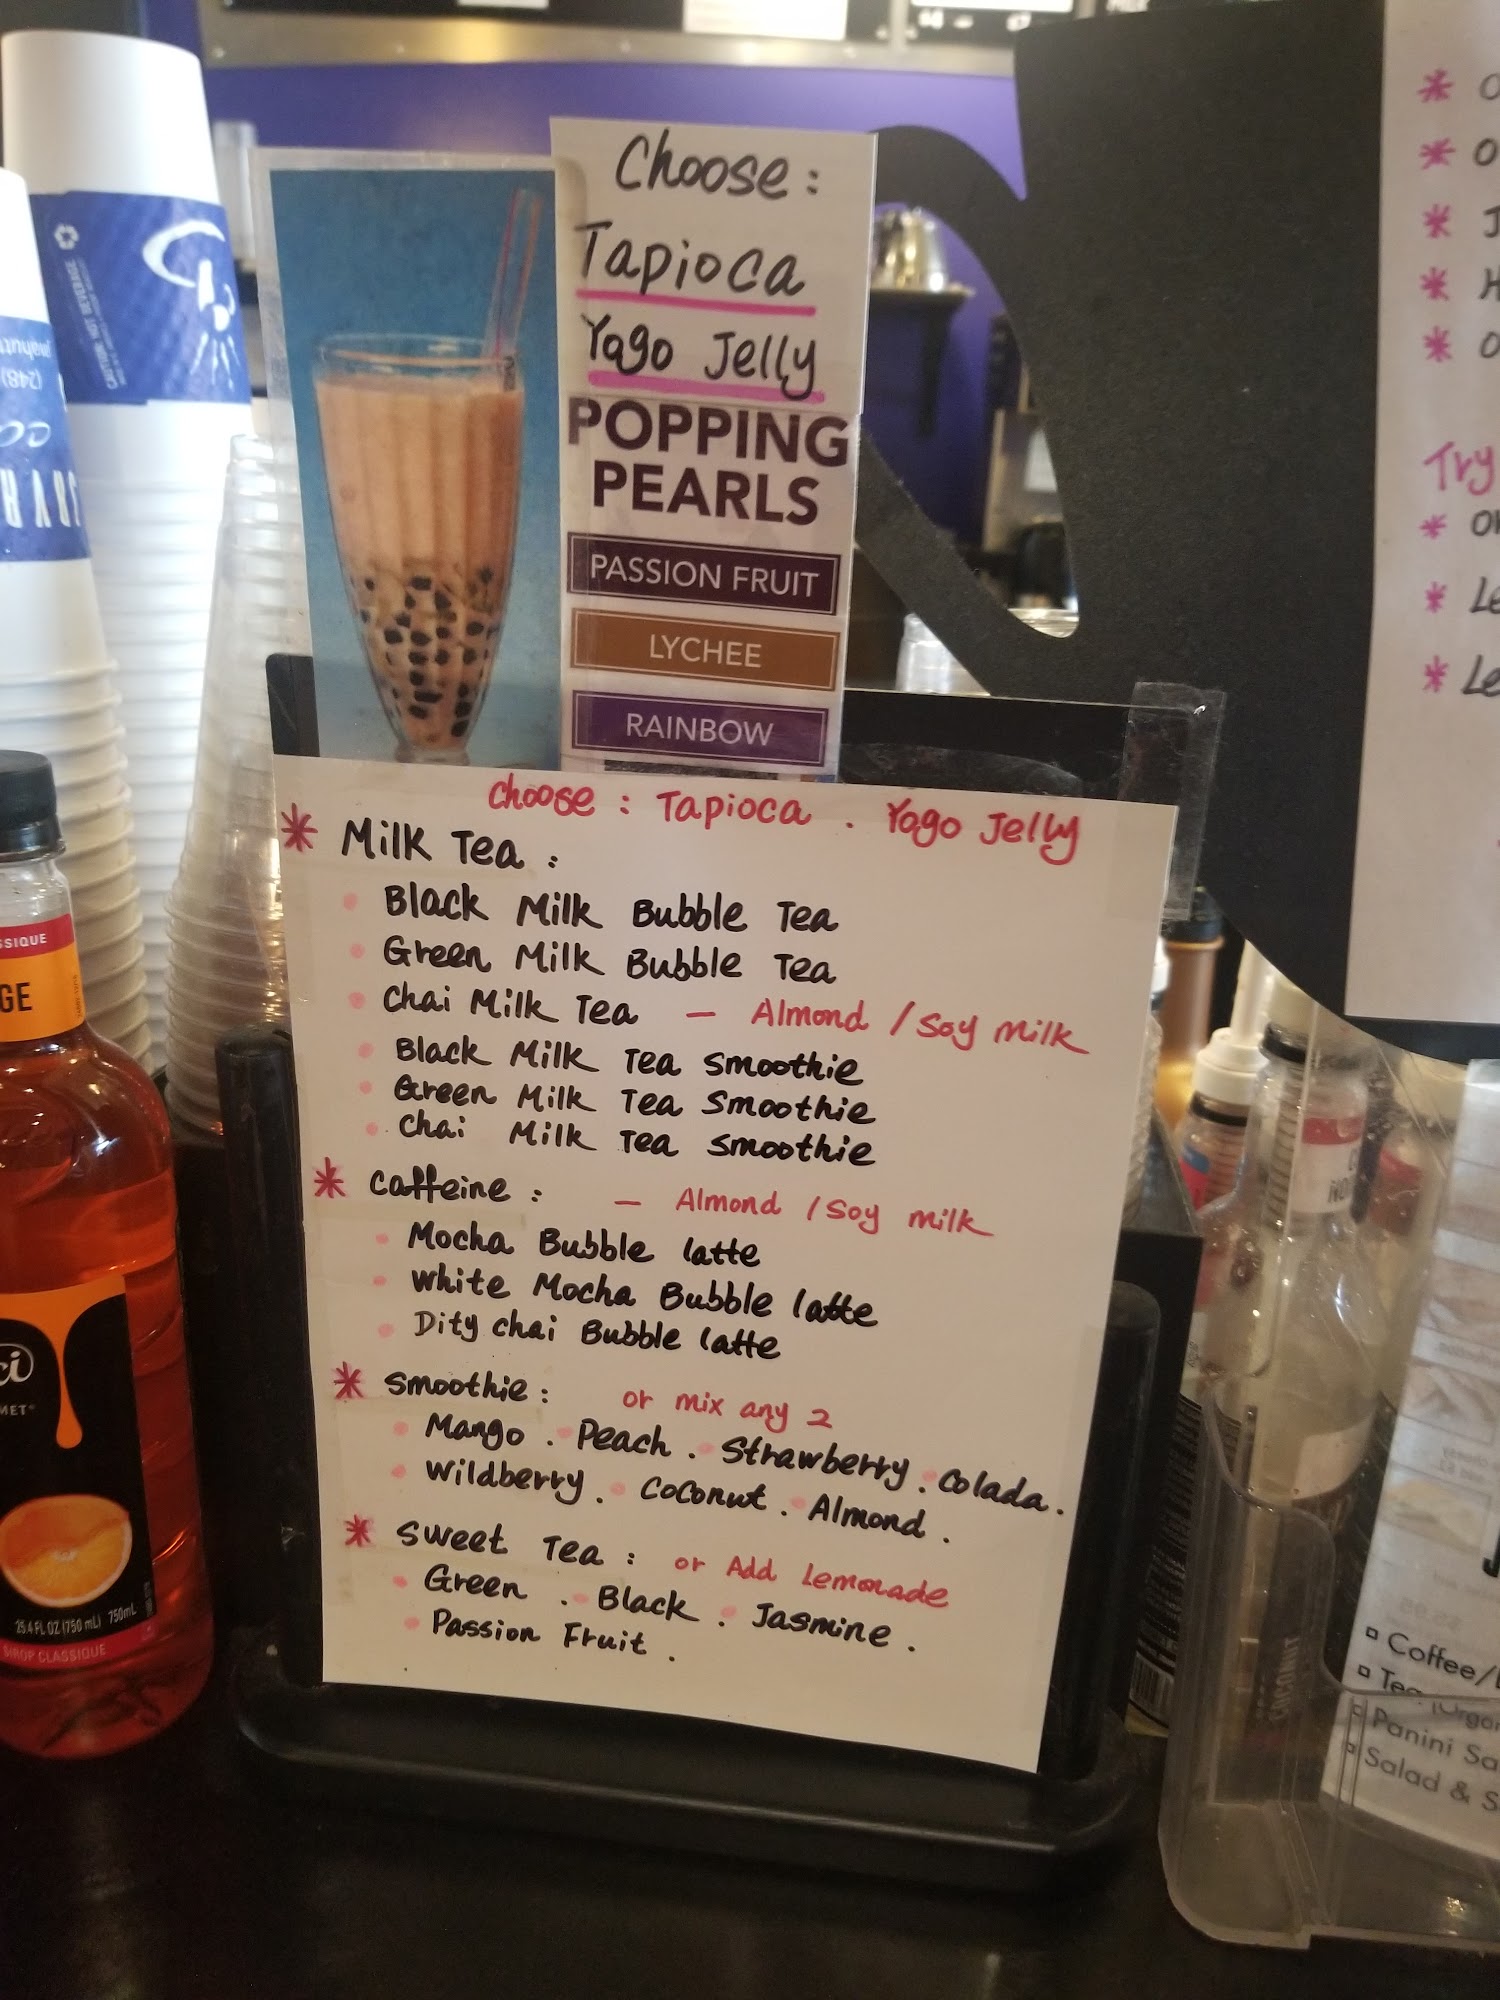 Choose:
Tapioca
Yogo Jelly
POPPING
PEARLS
PASSION FRUIT
LYCHEE
RAINBOW
Choose: Tapioca . Yogo Jelly
* Milk Tea:
• Black Milk Bubble Tea
• Green Milk Bubble Tea
• Chai Milk Tea — Almond / Soy milk
• Black Milk Tea Smoothie
• Green Milk Tea Smoothie
• Chai Milk Tea Smoothie
* Caffeine: — Almond / Soy milk
• Mocha Bubble latte
• White Mocha Bubble latte
• Dity chai Bubble latte
* Smoothie: or mix any 2
• Mango . • Peach . • Strawberry . • Colada .
• Wildberry . • Coconut . • Almond .
* Sweet Tea: or Add Lemonade
• Green . • Black . • Jasmine .
• Passion Fruit .
SSIQUE
GE
25.4 FL OZ (750 mL) 750mL
SIROP CLASSIQUE
(248)
Try
Coffee/
Panini Sa
Salad & S
COCONUT